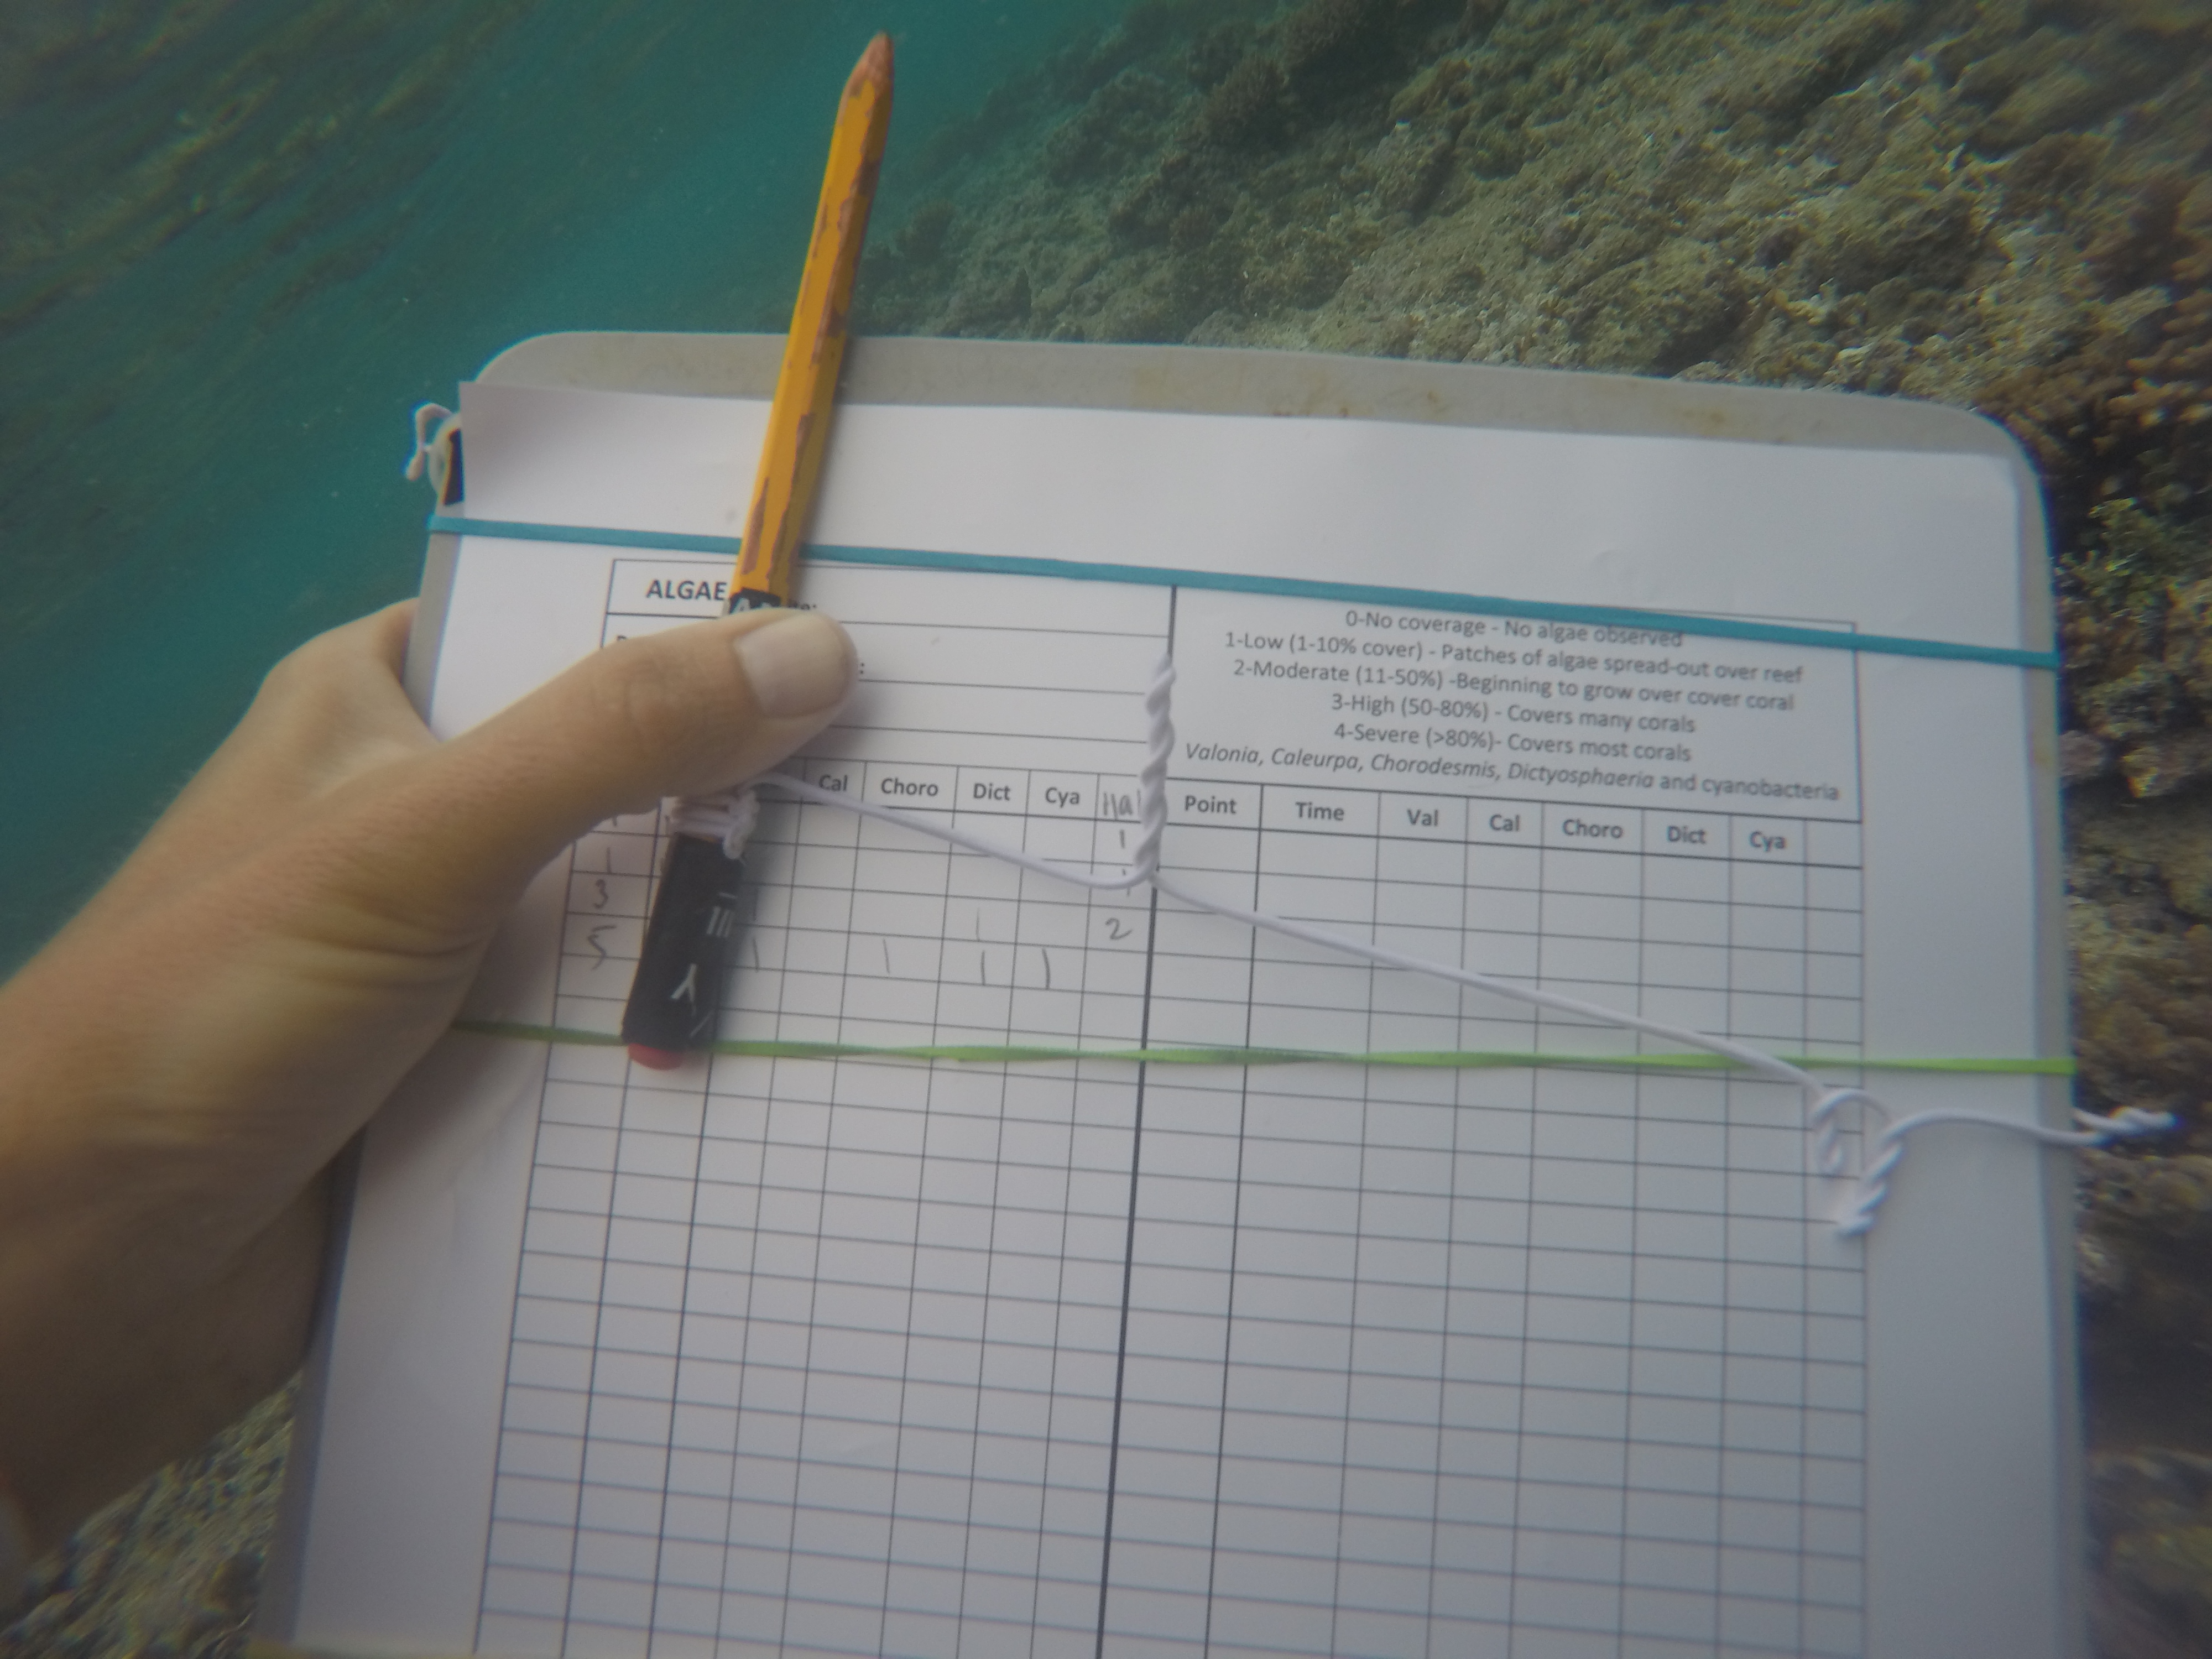 ALGAE
0-No coverage - No algae observed
1-Low (1-10% cover) - Patches of algae spread-out over reef
2-Moderate (11-50%) -Beginning to grow over cover coral
3-High (50-80%) - Covers many corals
4-Severe (>80%)- Covers most corals
Valonia, Caleurpa, Chorodesmis, Dictyosphaeria and cyanobacteria
Cal Choro Dict Cya Hal Point Time Val Cal Choro Dict Cya
1
1
3 1 2
5 1 1 1 1